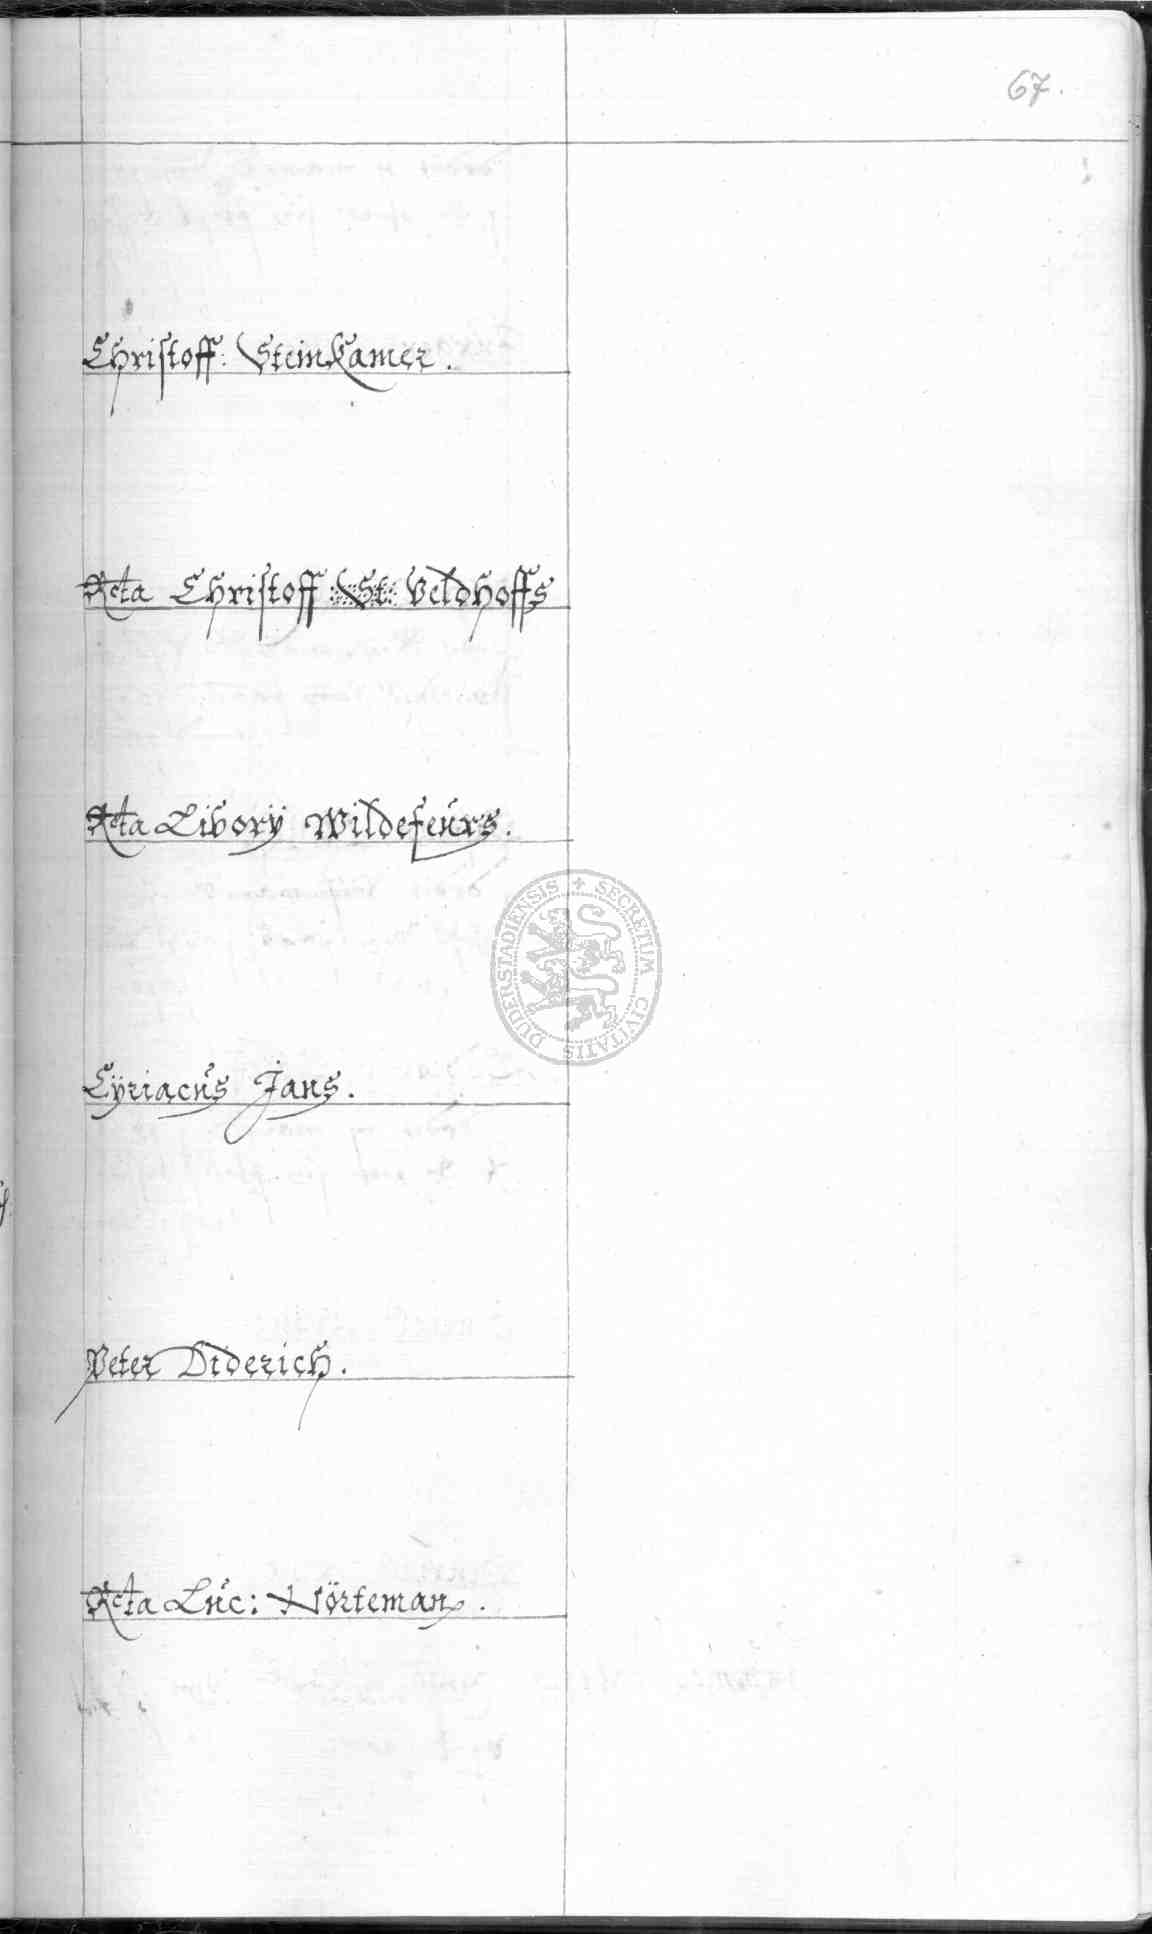 67.
Christoff: Steinkamer.
Acta Christoff St: Veldhoffs
Acta Livorÿ Wildefeurs.
DUDERSTADIENSIS + SECRETUM CIVITATIS
Cÿriacus Jans.
Peter Diderich.
Acta Luc: Nörteman.